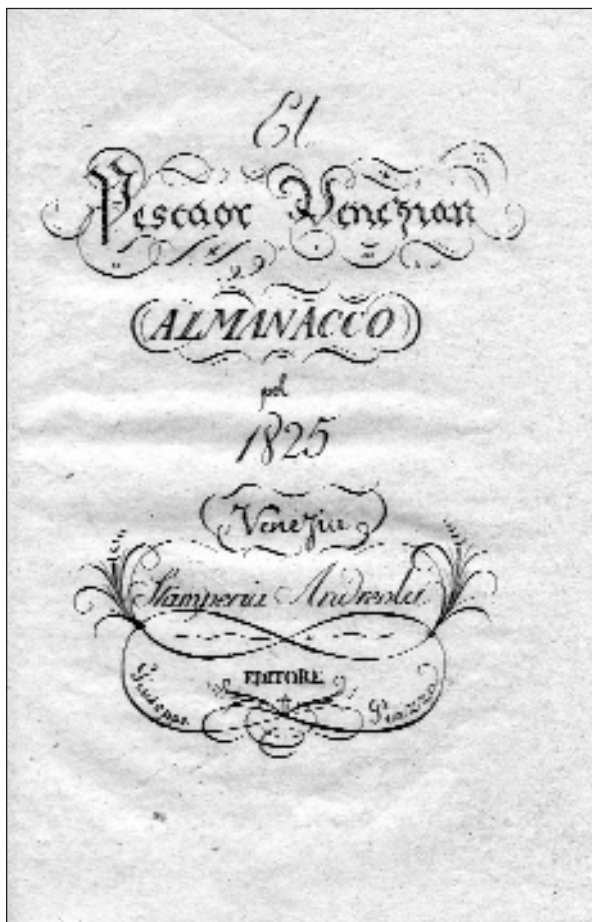 El
Pescaor Venezian
ALMANACCO
pel
1825
Venezia
Stamperia Andreola
EDITORE
Giuseppe